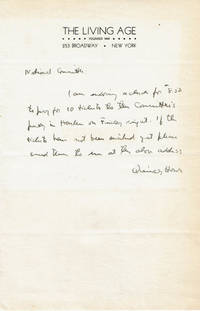 THE LIVING AGE
FOUNDED 1844
253 BROADWAY • NEW YORK
National Committee
I am enclosing a check for $8.50
to pay for 10 tickets to the Committee's
party in Harlem on Friday night. If the
tickets have not been mailed yet please
send them to me at the above address
Quincy Howe